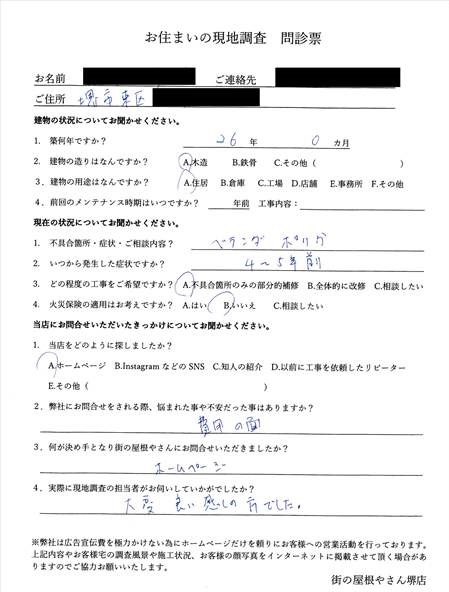 お住まいの現地調査　問診票
お名前　ご連絡先
ご住所　堺市東区
建物の状況についてお聞かせください。
1. 築何年ですか？　26 年　0 カ月
2. 建物の造りはなんですか？　A.木造　B.鉄骨　C.その他（　）
3. 建物の用途はなんですか？　A.住居　B.倉庫　C.工場　D.店舗　E.事務所　F.その他
4. 前回のメンテナンス時期はいつですか？　年前　工事内容：
現在の状況についてお聞かせください。
1. 不具合箇所・症状・ご相談内容？　ベランダ　ポリカ
2. いつから発生した症状ですか？　4〜5年前
3. どの程度の工事をご希望ですか？　A.不具合箇所のみの部分的補修　B.全体的に改修　C.相談したい
4. 火災保険の適用はお考えですか？　A.はい　B.いいえ　C.相談したい
当店にお問合せいただいたきっかけについてお聞かせください。
1. 当店をどのように探しましたか？
A.ホームページ　B.Instagram などの SNS　C.知人の紹介　D.以前に工事を依頼したリピーター
E.その他（　）
2. 弊社にお問合せをされる際、悩まれた事や不安だった事はありますか？
費用の面
3. 何が決め手となり街の屋根やさんにお問合せいただきましたか？
ホームページ
4. 実際に現地調査の担当者がお伺いしていかがでしたか？
大変 良い感じの方でした。
※弊社は広告宣伝費を極力かけない為にホームページだけを頼りにお客様への営業活動を行っております。
上記内容やお客様宅の調査風景や施工状況、お客様の顔写真をインターネットに掲載させて頂く場合があ
りますのでご協力お願いいたします。
街の屋根やさん堺店